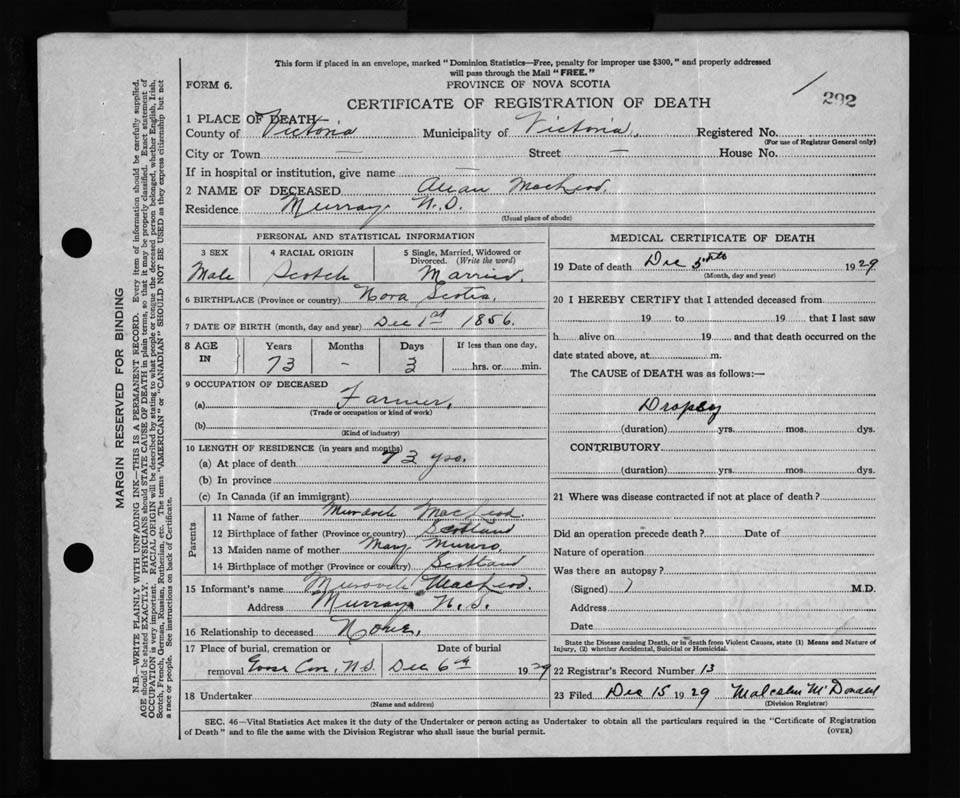 This form if placed in an envelope, marked "Dominion Statistics—Free, penalty for improper use $300," and properly addressed
will pass through the Mail "FREE."
FORM 6. PROVINCE OF NOVA SCOTIA
CERTIFICATE OF REGISTRATION OF DEATH 292
1 PLACE OF DEATH
County of Victoria Municipality of Victoria Registered No.
(For use of Registrar General only)
City or Town — Street — House No.
If in hospital or institution, give name —
2 NAME OF DECEASED Allan MacLeod.
Residence Murray N.S.
(Usual place of abode)
PERSONAL AND STATISTICAL INFORMATION
3 SEX 4 RACIAL ORIGIN 5 Single, Married, Widowed or
Divorced. (Write the word)
Male Scotch Married.
6 BIRTHPLACE (Province or country) Nova Scotia.
7 DATE OF BIRTH (month, day and year) Dec 1st 1856.
8 AGE IN Years Months Days If less than one day,
73 - 3 hrs. or min.
9 OCCUPATION OF DECEASED
(a) Farmer,
(Trade or occupation or kind of work)
(b)
(Kind of industry)
10 LENGTH OF RESIDENCE (in years and months)
(a) At place of death 73 yrs.
(b) In province
(c) In Canada (if an immigrant)
Parents
11 Name of father Murdoch MacLeod.
12 Birthplace of father (Province or country) Scotland
13 Maiden name of mother Mary Munro
14 Birthplace of mother (Province or country) Scotland
15 Informant's name Murdoch MacLeod.
Address Murray N.S.
16 Relationship to deceased None,
17 Place of burial, cremation or Date of burial
removal N.S. Dec 6th 1929
18 Undertaker
(Name and address)
MEDICAL CERTIFICATE OF DEATH
19 Date of death Dec 5th 1929
(Month, day and year)
20 I HEREBY CERTIFY that I attended deceased from
19 to 19 that I last saw
h alive on 19 and that death occurred on the
date stated above, at m.
The CAUSE of DEATH was as follows:—
Dropsy
(duration) yrs. mos. dys.
CONTRIBUTORY
(duration) yrs. mos. dys.
21 Where was disease contracted if not at place of death?
Did an operation precede death? Date of
Nature of operation
Was there an autopsy?
(Signed) M.D.
Address
Date
State the Disease causing Death, or in death from Violent Causes, state (1) Means and Nature of
Injury, (2) whether Accidental, Suicidal or Homicidal.
22 Registrar's Record Number 13
23 Filed Dec 15 1929 Malcolm McDonald
(Division Registrar)
SEC. 46—Vital Statistics Act makes it the duty of the Undertaker or person acting as Undertaker to obtain all the particulars required in the "Certificate of Registration
of Death" and to file the same with the Division Registrar who shall issue the burial permit.
(OVER)
MARGIN RESERVED FOR BINDING
N.B.—WRITE PLAINLY WITH UNFADING INK—THIS IS A PERMANENT RECORD. Every item of information should be carefully supplied.
AGE should be stated EXACTLY. PHYSICIANS should STATE CAUSE OF DEATH in plain terms, so that it may be properly classified. Exact statement of
OCCUPATION is very important. RACIAL ORIGIN will be described by stating to what people or tongue the deceased person belonged, whether English, Irish,
Scotch, French, German, Russian, Ruthenian, etc. The terms "AMERICAN" or "CANADIAN" SHOULD NOT BE USED as they express citizenship but not
a race or people. See instructions on back of Certificate.